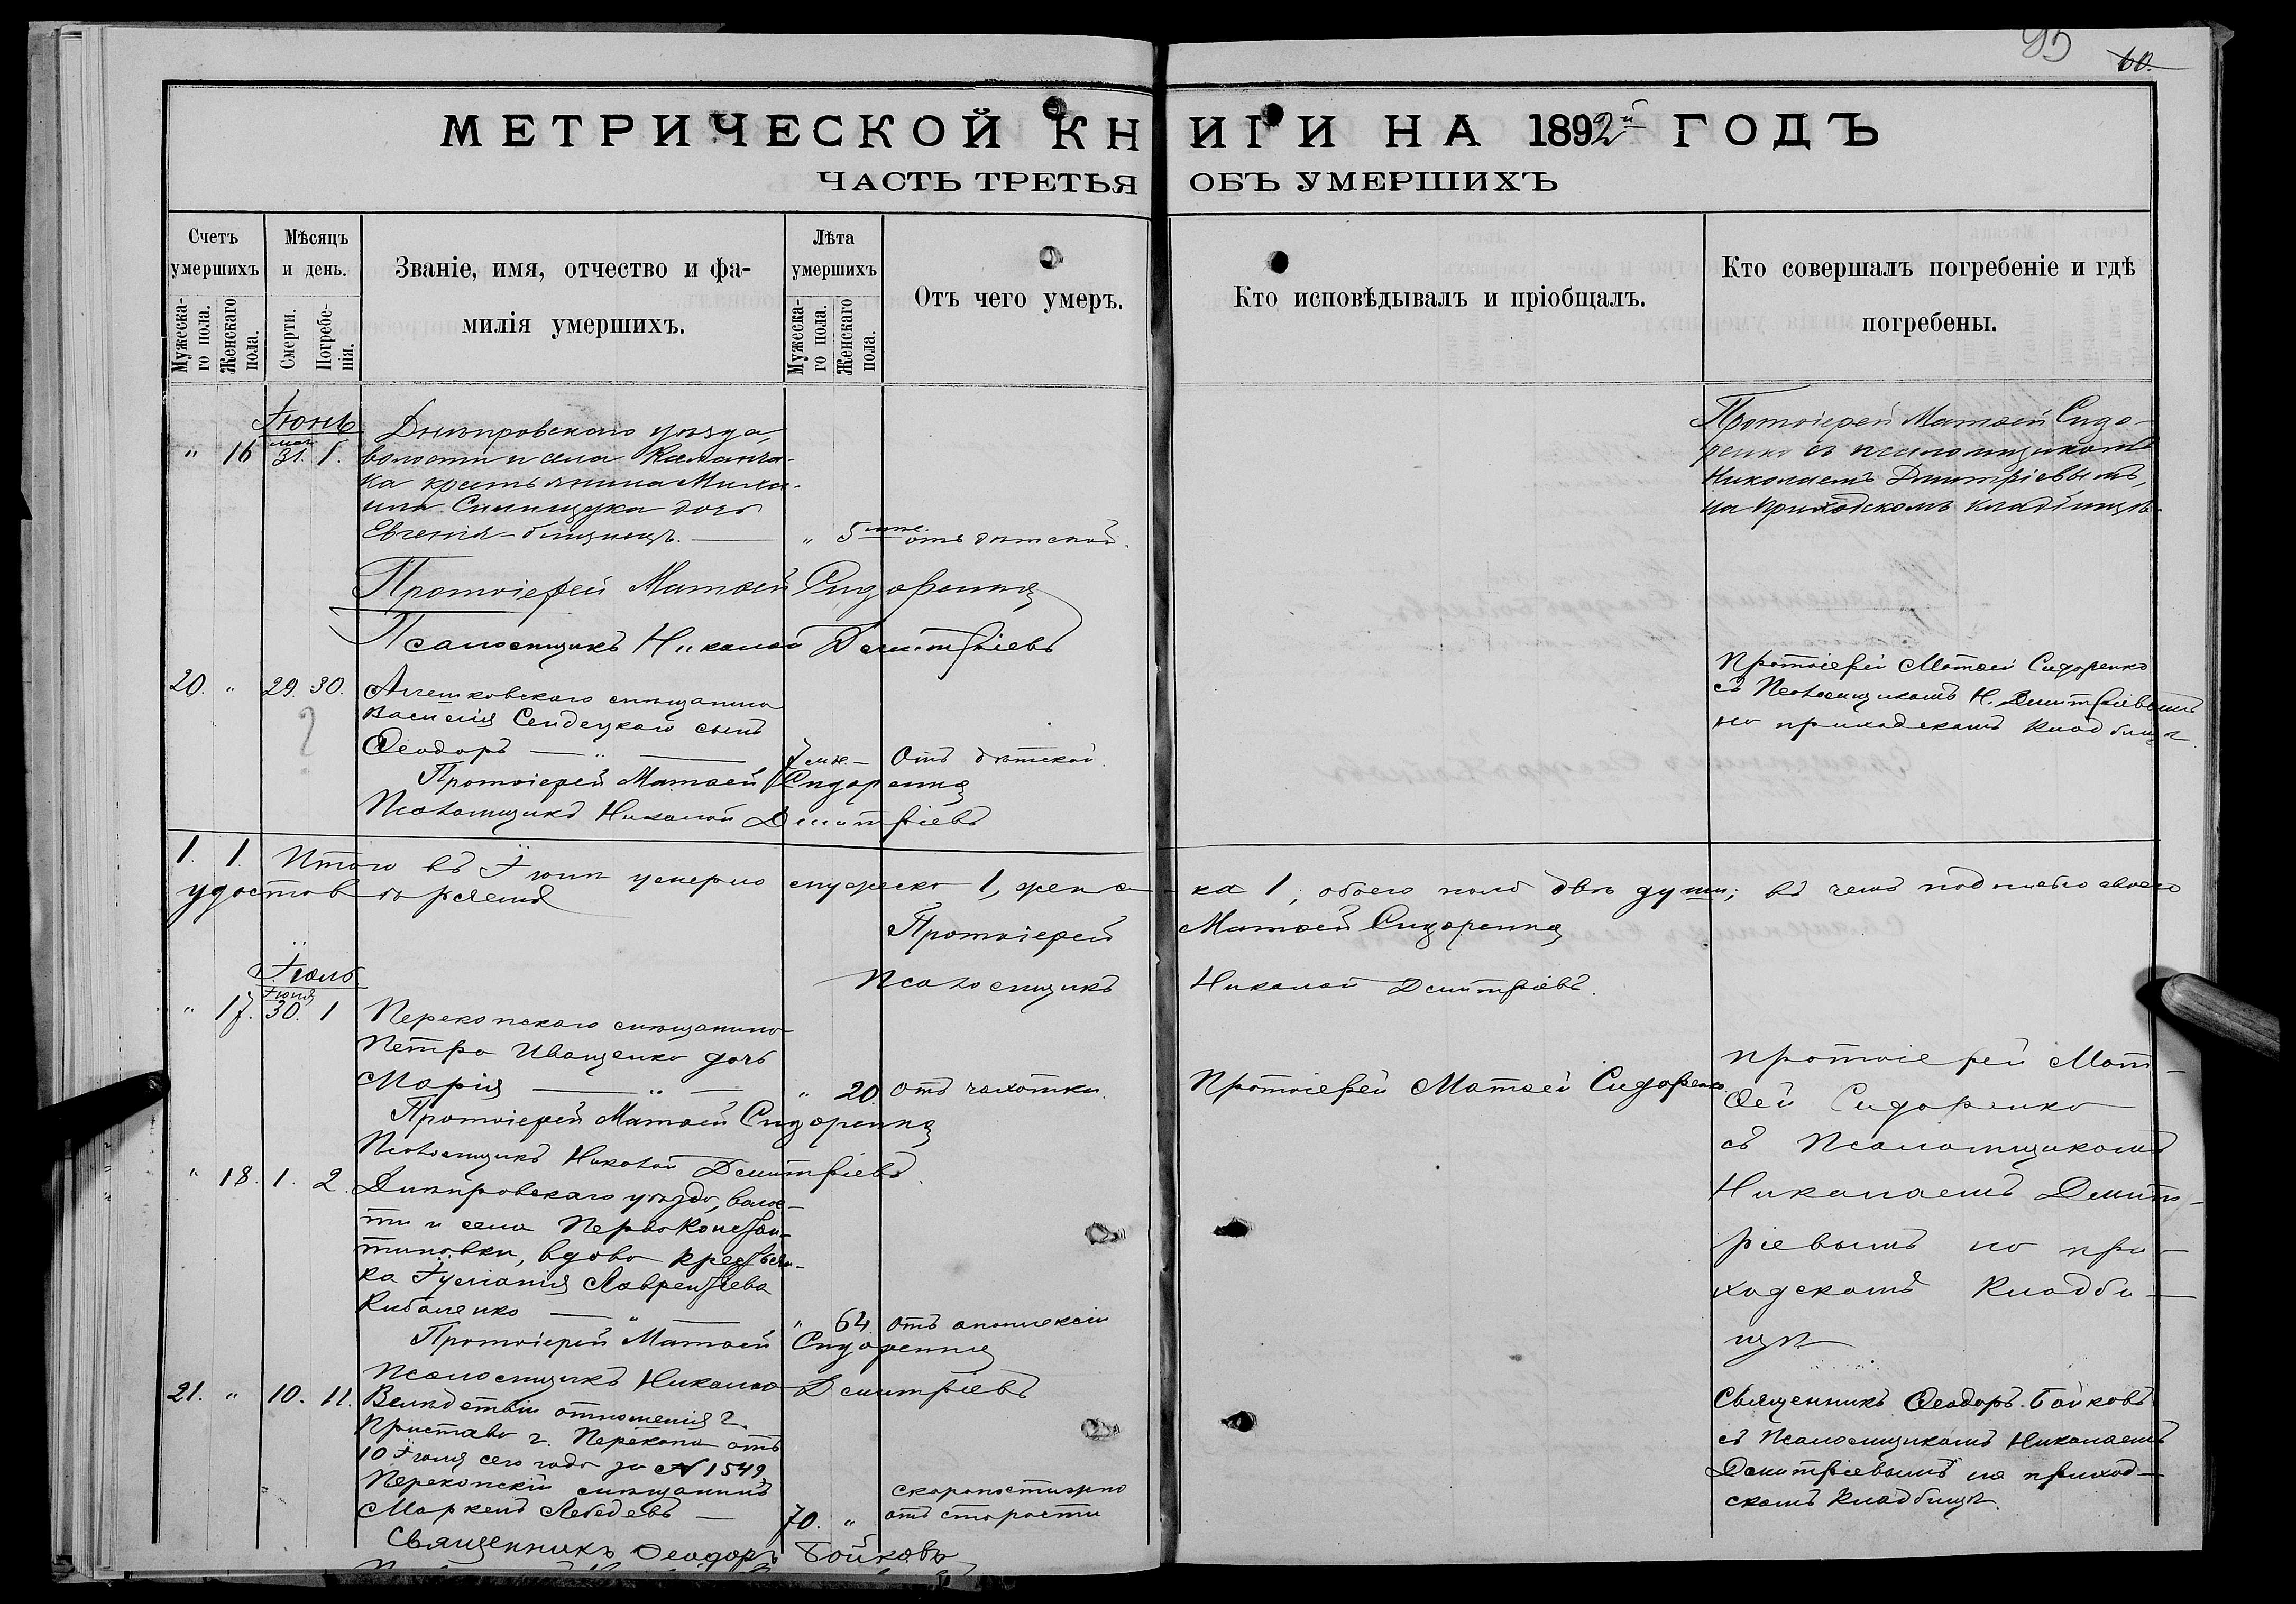 95 60.
МЕТРИЧЕСКОЙ КНИГИ НА 1892й ГОДЪ
ЧАСТЬ ТРЕТЬЯ ОБЪ УМЕРШИХЪ
Счетъ умершихъ.
Мужескаго пола.
Женскаго пола.
Мѣсяцъ и день.
Смерти.
Погребенія.
Званіе, имя, отчество и фамилія умершихъ.
Лѣта умершихъ
Мужескаго пола.
Женскаго пола.
Отъ чего умеръ.
Кто исповѣдывалъ и пріобщалъ.
Кто совершалъ погребеніе и гдѣ погребены.
Іюнь
" 16 мая 31. 1. Днѣпровскаго уѣзда,
волости и села Каланча-
ка крестьянина Миха-
ила Синищука дочь
Евгенія – близнецъ. — " 5 мѣс. отъ дѣтской.
Протоіерей Матѳей Сидо-
ренко съ псаломщикомъ
Николаемъ Дмитріевымъ,
на приходскомъ кладбищѣ.
Протоіерей Матѳей Сидоренко
Псаломщикъ Николай Дмитріевъ
20. " 29. 30. Алешковскаго мѣщанина
Василія Сендецкаго сынъ
Ѳеодоръ — " — 7 мѣс. — Отъ дѣтской.
Протоіерей Матѳей Сидоренко
съ Псаломщикомъ Н. Дмитріевымъ
на приходскомъ кладбищѣ.
Протоіерей Матѳей Сидоренко
Псаломщикъ Николай Дмитріевъ
1. 1. Итого въ Іюнѣ умерло мужеска 1, женс-ка 1, обоего пола двѣ души; въ чемъ подписью своею
удостовѣряемъ
Протоіерей Матѳей Сидоренко
Псаломщикъ Николай Дмитріевъ.
Іюль
" 17. Іюня 30. 1 Перекопскаго мѣщанина
Петра Иващенко дочь
Марія — " — " 20. отъ чахотки.
Протоіерей Матѳей Сидоренко
Протоіерей Мат-
ѳей Сидоренко
съ Псаломщикомъ
Николаемъ Дмит-
ріевымъ на при-
ходскомъ кладби-
щѣ
Протоіерей Матѳей Сидоренко
Псаломщикъ Николай Дмитріевъ.
" 18. 1. 2. Днѣпровскаго уѣзда, волос-
ти и села Первоконстан-
тиновки, вдова крестьян-
ка Іуліанія Лаврентіева
Рибаленко — " — " 64. отъ апоплексіи
Протоіерей Матѳей Сидоренко
Псаломщикъ Николай Дмитріевъ
21. " 10. 11. Вслѣдствіи отношенія г.
Пристава г. Перекопа отъ
10 Іюля сего года за № 1549
Перекопскій мѣщанинъ
Маркелъ Лебедевъ — 70. " скоропостижно
отъ старости
Священникъ Ѳеодоръ Бойковъ
съ Псаломщикомъ Николаемъ
Дмитріевымъ на приход-
скомъ кладбищѣ.
Священникъ Ѳеодоръ Бойковъ